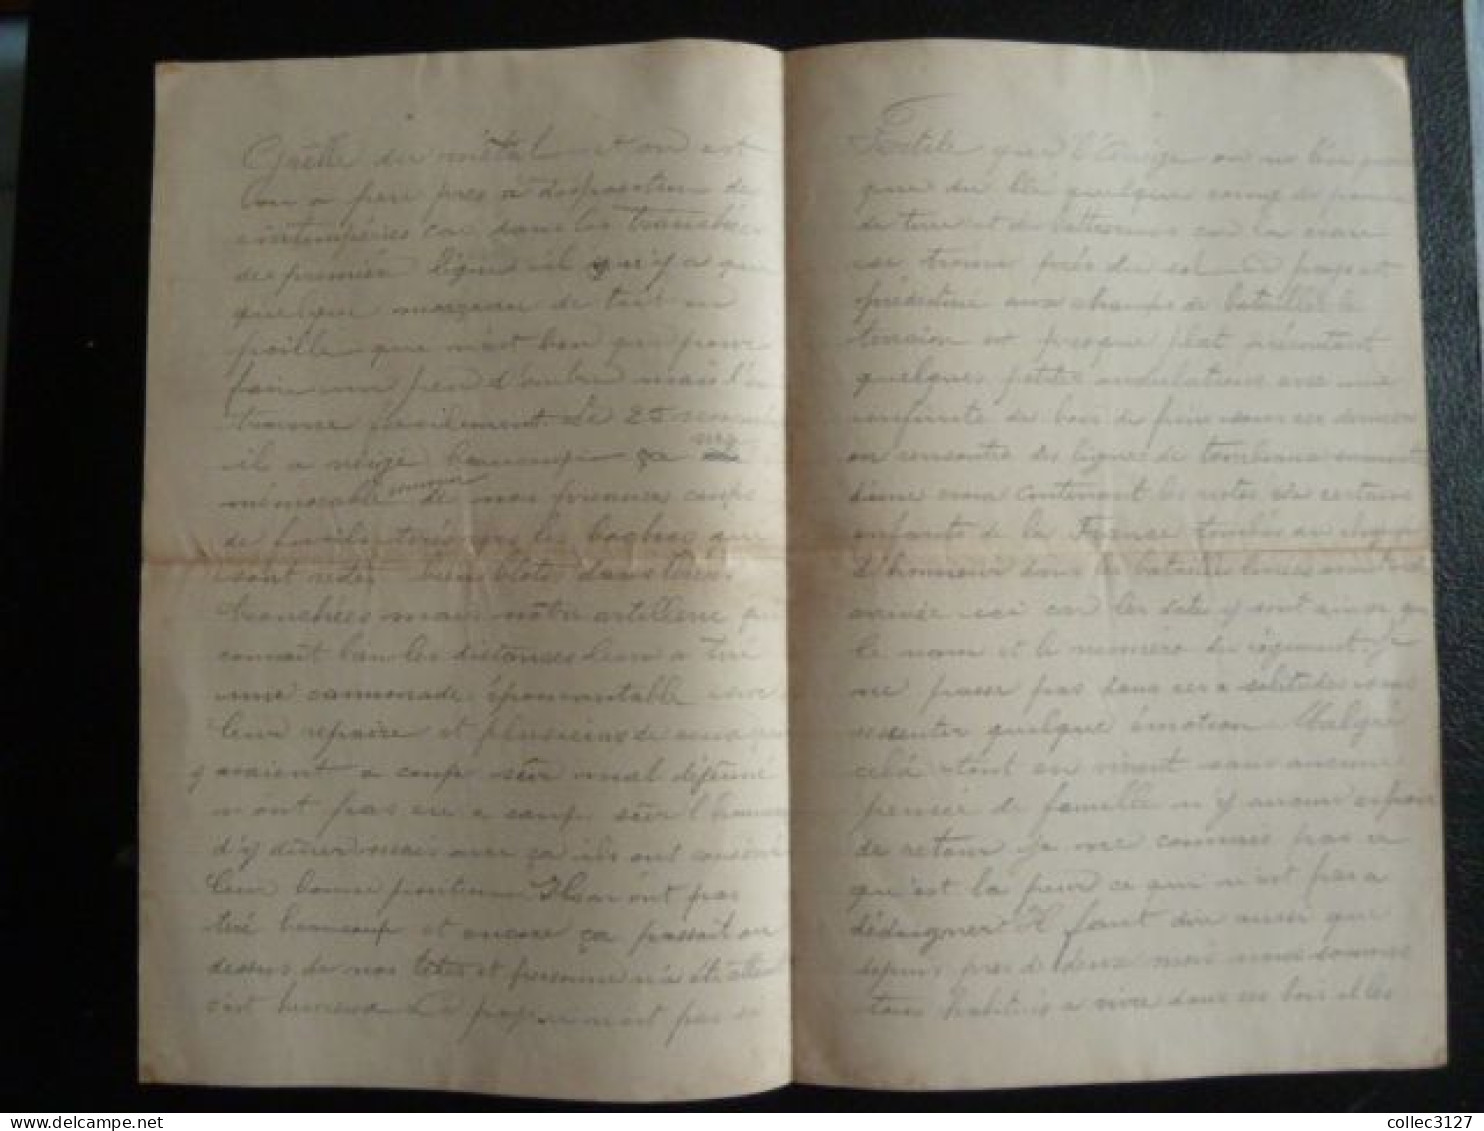 Grêlle de métal et on est
tou a peu pres a disposition de
intempéries car dans les tranchées
de première ligne il n'y a que
quelque morceau de toit en
paille que n'est bon que pour
faire un peu d'ombre mais l'eau
traverse facilement. Le 25 novembre
il a neigé beaucoup ça sera
mémorable comme de mon premier coups
de fusils tirés sur les boches qui
sont restés bien blotis dans leurs
tranchées mais nôtre artillerie qui
connait bien les distances leur a tiré
une cannonade épouvantable sur
leur repaire et plusieurs de ceux qui
y avaient a coup sûr mal déjeuné
n'ont pas eu a coup sûr l'honneur
d'y diner mais avec ça ils ont conservé
leur bonne position Ils n'ont pas
tiré beaucoup et encore ça passait au
dessus de nos têtes et personne n'a été atteint
c'est heureux Le pays n'est pas si
Fertile que l'Ariège on ne voit
que du blé quelques champ de pommes
de terre et des betteraves car la
se trouve près du sol Ce pays est
prédestiné aux champs de batailles le
terrain est presque plat présentant
quelques petites ondulations avec une
infinité de bois de pins sous ces derniers
on rencontre des lignes de tombeaux surmontés
d'une croix contenant les restes de certains
enfants de la France tombés au champ
d'honneur dans les batailles livrées avant notre
arrivée ici car les dates y sont ainsi que
le nom et le numéro du régiment. Je
ne passe pas dans cette solitude sans
ressentir quelque émotion Malgré
cela tout en vivant sans aucune
pensée de famille n'y aucun espoir
de retour je me connais pas ce
qu'est la peur ce qui n'est pas a
dédaigner Il faut dire aussi que
depuis près de deux mois nous sommes
tous habitués a vivre dans ces bois et les
collec3127